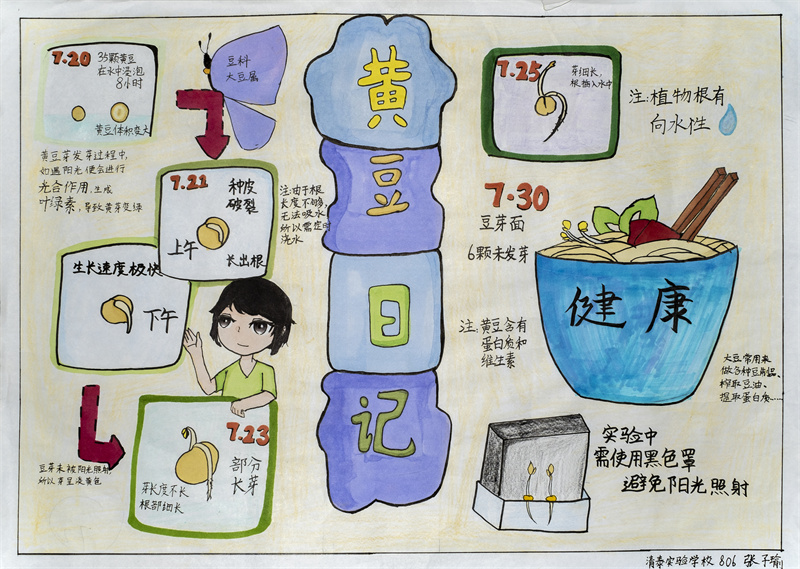 黄
豆
日
记
7.20
35颗黄豆
在水中浸泡
8小时
黄豆体积变大
豆科
大豆属
黄豆芽发芽过程中,
如遇阳光便会进行
光合作用,生成
叶绿素,导致黄芽变绿
7.21
种皮
破裂
上午
长出根
注:由于根
长度不够,
无法吸水
所以需定时
浇水
生长速度极快
下午
7.23
部分
长芽
芽长度不长
根部细长
豆芽未被阳光照射
所以芽呈淡黄色
7.25
芽细长,
根植入水中
注:植物根有
向水性
7.30
豆芽面
6颗未发芽
健康
注:黄豆含有
蛋白质和
维生素
大豆常用来
做各种豆制品、
榨取豆油、
提取蛋白质……
实验中
需使用黑色罩
避免阳光照射
清泰实验学校 806 张子瑜